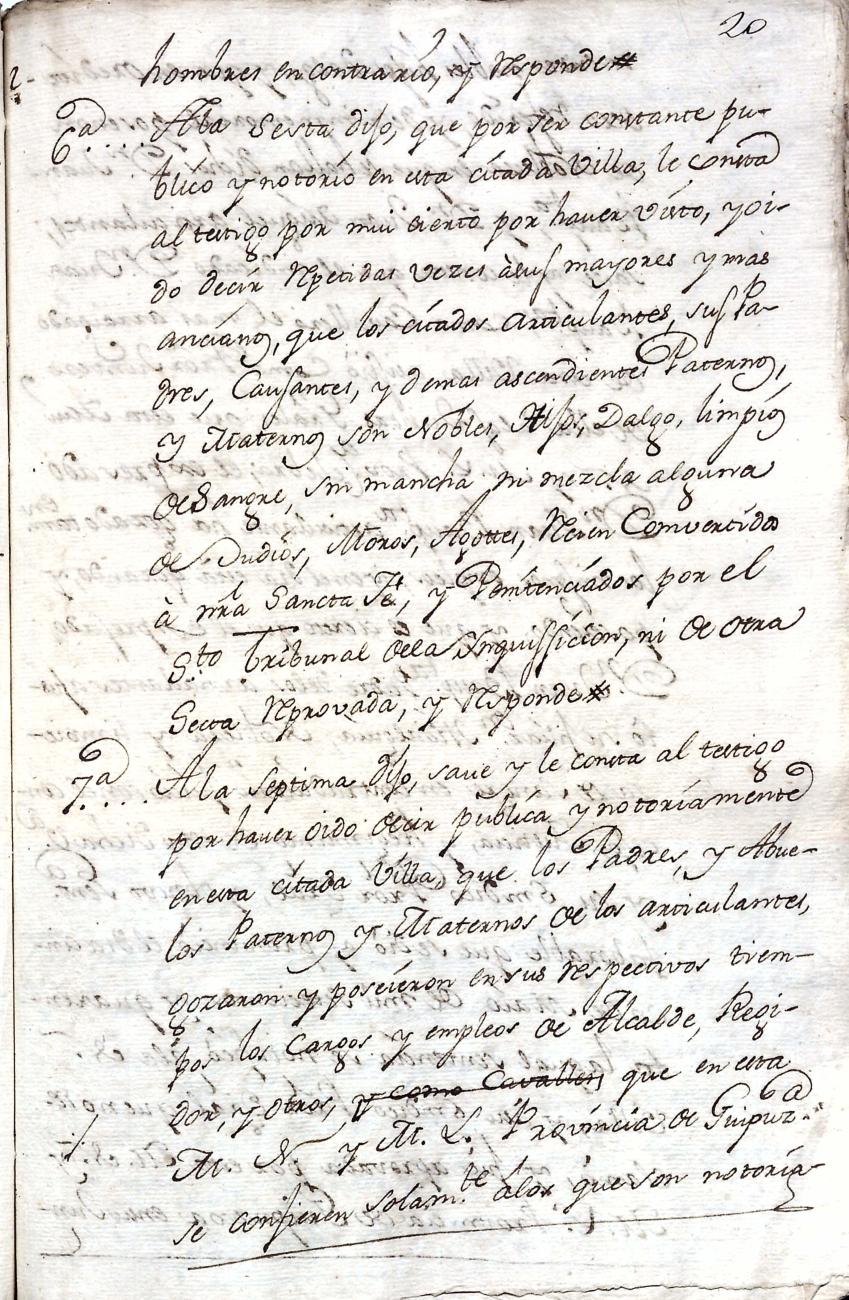 20
hombres en contrario, y Responde#
6ª.... A la Sesta dijo, que por ser constante pu-
blico y notorio en esta citada Villa, le consta
al testigo por mui cierto por haver visto, y oi-
do decir Repetidas vezes à sus mayores y mas
ancianos, que los citados articulantes, sus Pa-
dres, Causantes, y demas ascendientes Paternos,
y Maternos son Nobles, Hijos, Dalgo, limpios
de Sangre, sin mancha ni mezcla alguna
de Judios, Moros, Agottes, Recien Convertidos
à nrâ Sancta Fe, y Penitenciados por el
Sto Tribunal dela Inquissicion, ni de otra
Secta Reprovada, y Responde#
7ª.... A la Septima dijo, save y le consta al testigo
por haver oido decir publica y notoriamente
en esta citada Villa, que los Padres, y Abue-
los Paternos y Maternos de los articulantes,
gozaron y poseieron en sus Respectivos tiem-
pos los Cargos y empleos de Alcalde, Regi-
dor, y otros, y como Cavalleros que en esta
M. N. y M. L. Provincia de Guipuzª..
se confieren solam.te àlos que son notoria-